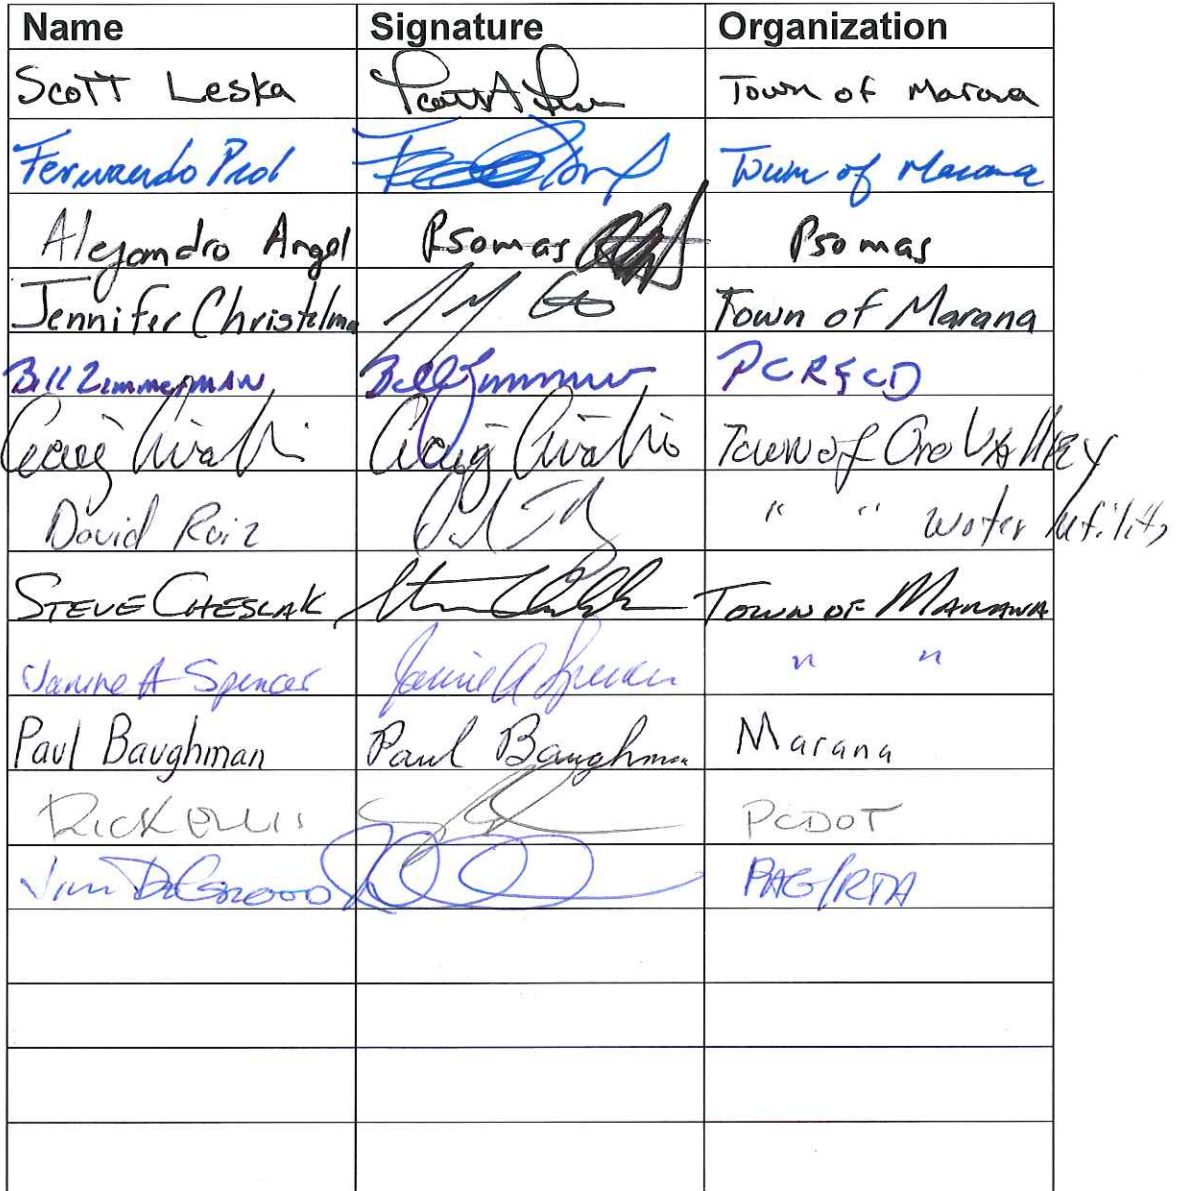 Name Signature Organization
Scott Leska Town of Marana
Fernando Prol Town of Marana
Alejandro Angel Psomas Psomas
Jennifer Christelman Town of Marana
Bill Zimmerman Bill Zimmerman PCRFCD
Craig Civalier Craig Civalier Town of Oro Valley
David Ruiz " " Water Utility
STEVE CHESLAK TOWN OF MARANA
Janine A Spencer Janine A Spencer " "
Paul Baughman Paul Baughman Marana
RICK ELLIS PCDOT
Jim DeGrood PAG/RTA